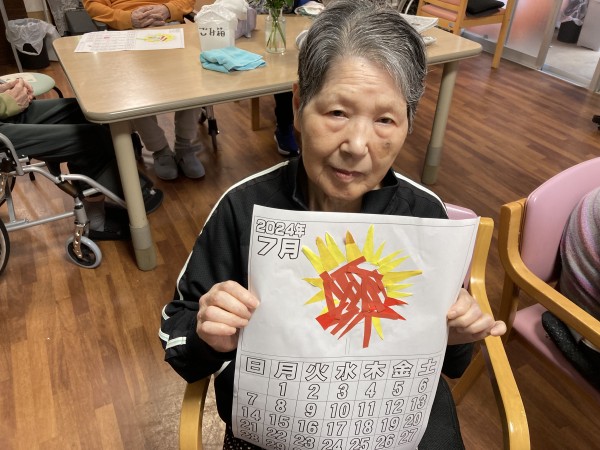 2024年
7月
日 月 火 水 木 金 土
1 2 3 4 5 6
7 8 9 10 11 12 13
14 15 16 17 18 19 20
21 22 23 24 25 26 27
28 29